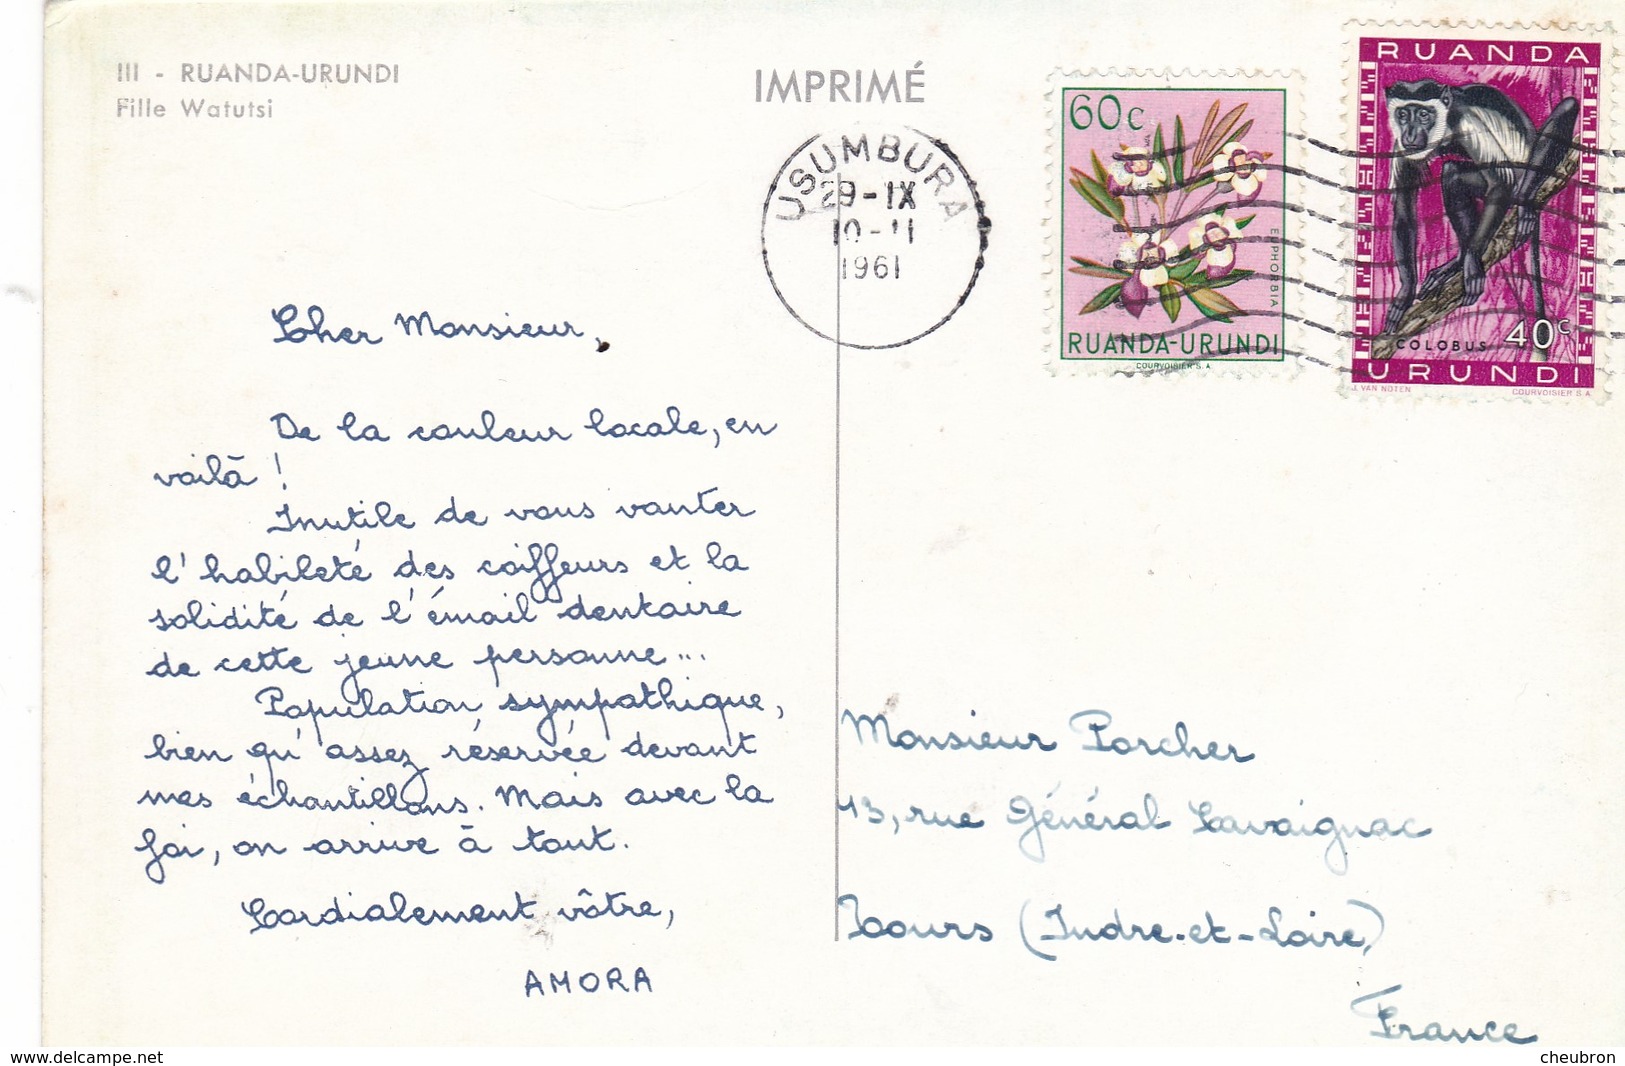 III - RUANDA-URUNDI
Fille Watutsi
IMPRIMÉ
USUMBURA
29-IX
10-11
1961
60c
EUPHORBIA
RUANDA-URUNDI
COURVOISIER S.A.
RUANDA
COLOBUS 40c
URUNDI
J. VAN NOTEN COURVOISIER S.A.
Cher Monsieur,
De la couleur locale, en
voilà !
Inutile de vous vanter
l'habileté des coiffeurs et la
solidité de l'émail dentaire
de cette jeune personne...
Population sympathique,
bien qu'assez réservée devant
mes échantillons. Mais avec la
foi, on arrive à tout.
Cordialement vôtre,
AMORA
Monsieur Porcher
43, rue Général Cavaignac
Tours (Indre-et-Loire)
France
www.delcampe.net
cheubron